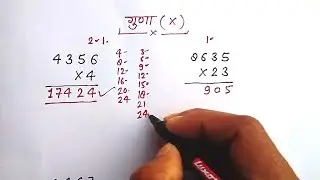 गुणा (×)
×
2-1-
1-
4356
×4
17424
4-
8-
12-
16-
20-
24
3-
6-
9-
12-
15-
18-
21
24
8635
×23
905